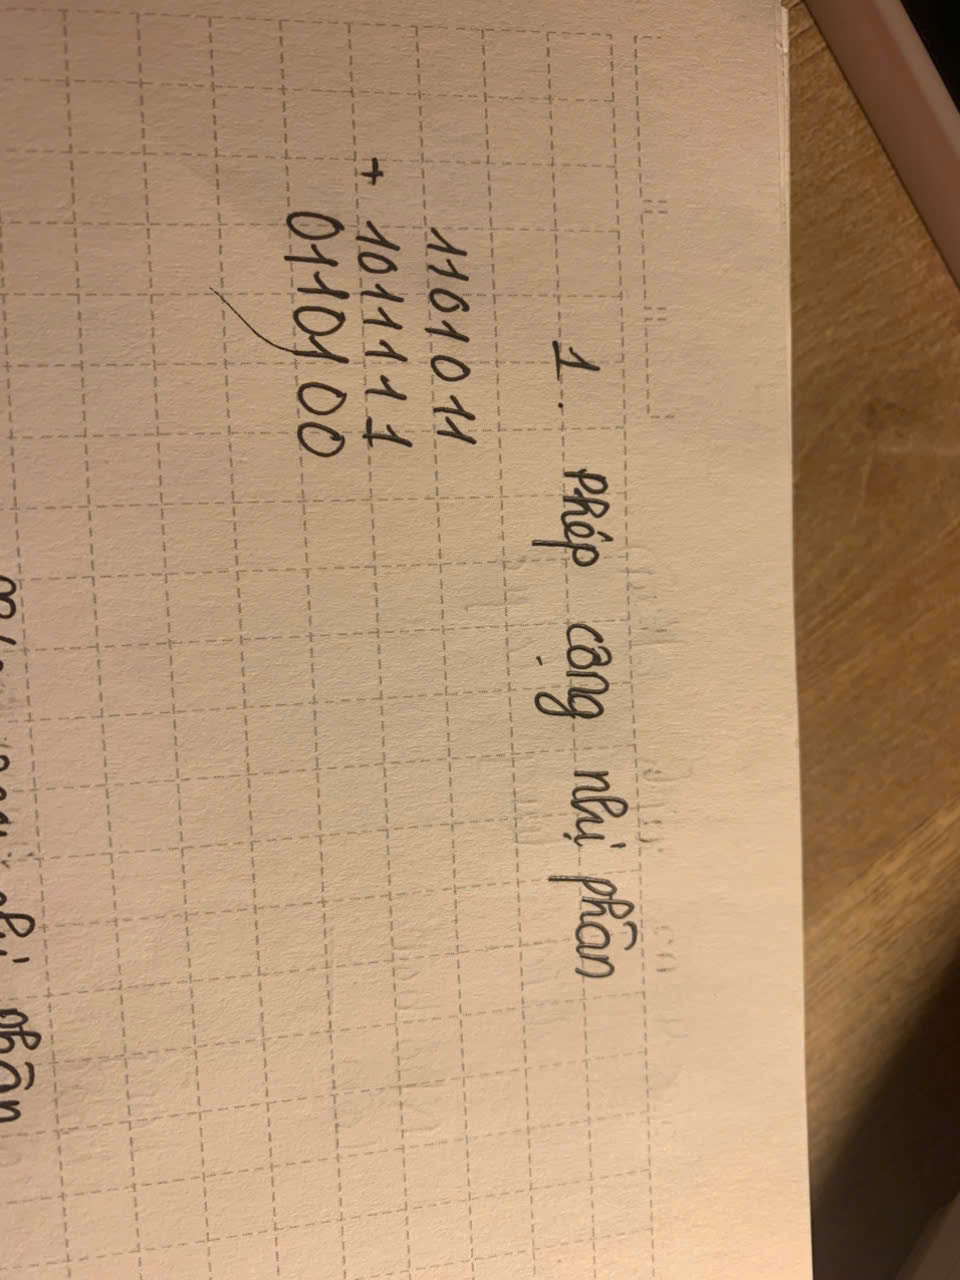 1. Phép cộng nhị phân
1101011
+ 1011111
0110100
phân